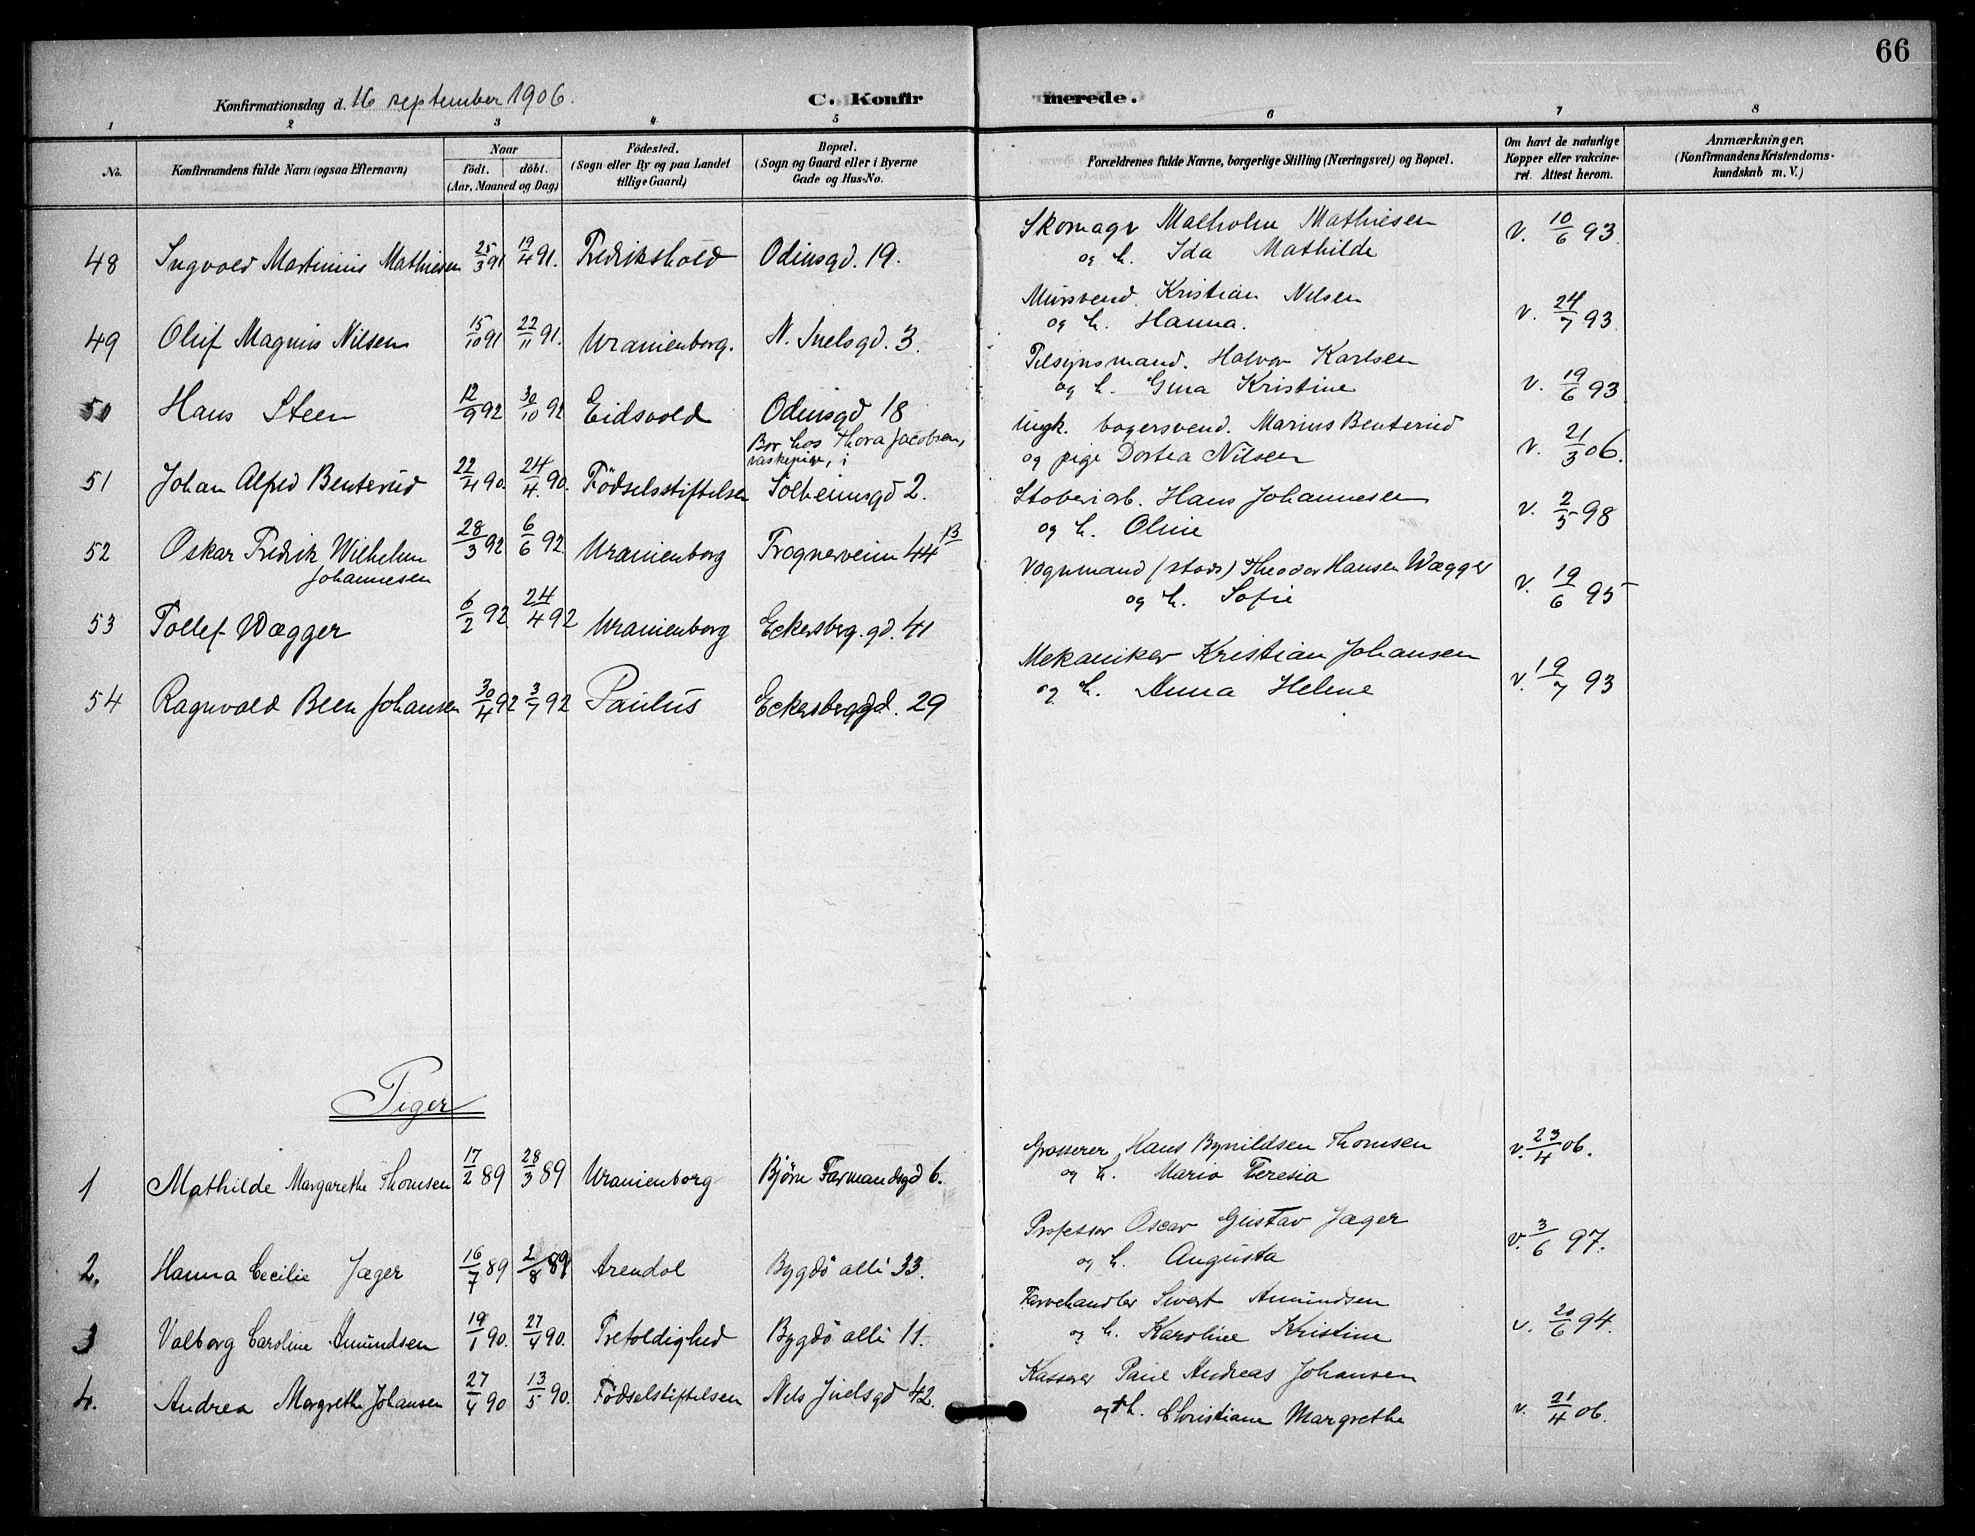 66
Konfirmationsdag d. 16 september 1906.
C. Konfirmerede.
1 2 3 4 5 6 7 8
No. Konfirmandens fulde Navn (ogsaa Efternavn) Naar födt. döbt. (Aar, Maaned og Dag) Födested. (Sogn eller By og paa Landet tillige Gaard) Bopæl. (Sogn og Gaard eller i Byerne Gade og Hus-No. Forældrenes fulde Navne, borgerlige Stilling (Næringsvei) og Bopæl. Om havt de naturlige Kopper eller vakcineret. Attest herom. Anmærkninger. (Konfirmandens Kristendomskundskab m. V.)
48 Ingvald Martinius Mathiesen 25/3 91 19/4 91. Fredrikshald Odinsgd. 19. Skomagr Malholm Mathiesen v. 10/6 93
og h. Ida Mathilde
49 Oluf Magnus Nilsen 15/10 91 22/11 91. Uranienborg. N. Juelsgd. 3. Mursvend. Kristian Nilsen v. 24/7 93.
og h. Hanna.
50 Hans Steen 12/9 92 30/10 92 Eidsvold Odinsgd 18 Tilsynsmand. Halvor Karlsen v. 19/6 93
og h. Gina Kristine
51 Johan Alfred Benterud 22/4 90. 24/4. 90. Födselsstiftelsen Bor hos Thora Jacobsen, vaskepige, i Solheimsgd 2. Ungk. bagersvend. Marius Benterud v. 21/3 06.
og pige Dortea Nilsen
52 Oskar Fredrik Wilhelm Johannesen 28/3 92 6/6 92 Uranienborg Frognerveien 44 B Støberiarb. Hans Johannesen v. 2/5 98
og h. Oline
53 Tollef Wægger 6/2 92 24/4 92 Uranienborg Eckersberg.gd. 41 Vognmand (stads) Theodor Hansen Wægger v. 19/6 95
og h. Sofie
54 Ragnvald Been Johansen 30/4 92 3/7 92 Paulus Eckersbergd. 29 Mekaniker Kristian Johansen v. 19/7 93
og h. Anna Helene
Piger
1 Mathilde Margarethe Thomsen 17/2 89 28/3 89 Uranienborg Bjørn Farmandsgd 6. Grosserer Hans Bynildsen Thomsen v. 23/4 06.
og h. Maria Teresia
2. Hanna Cecilie Jæger 16/7 89 2/8 89 Arendal Bygdö alli 33. Professor Oscar Gustav Jæger v. 3/6 97.
og h. Augusta
3 Valborg Caroline Amundsen 19/1 90. 27/4 90. Trefoldighed Bygdö alli 11. Farvehandler Sivert Amundsen v. 20/6 94.
og h. Karoline Kristine
4. Andrea Margrethe Johansen 27/4 90 13/5 90. Födselstiftelsen Nils Juelsgd 42. Kasserer Paul Andreas Johansen v. 21/4 06.
og h. Christiane Margrethe